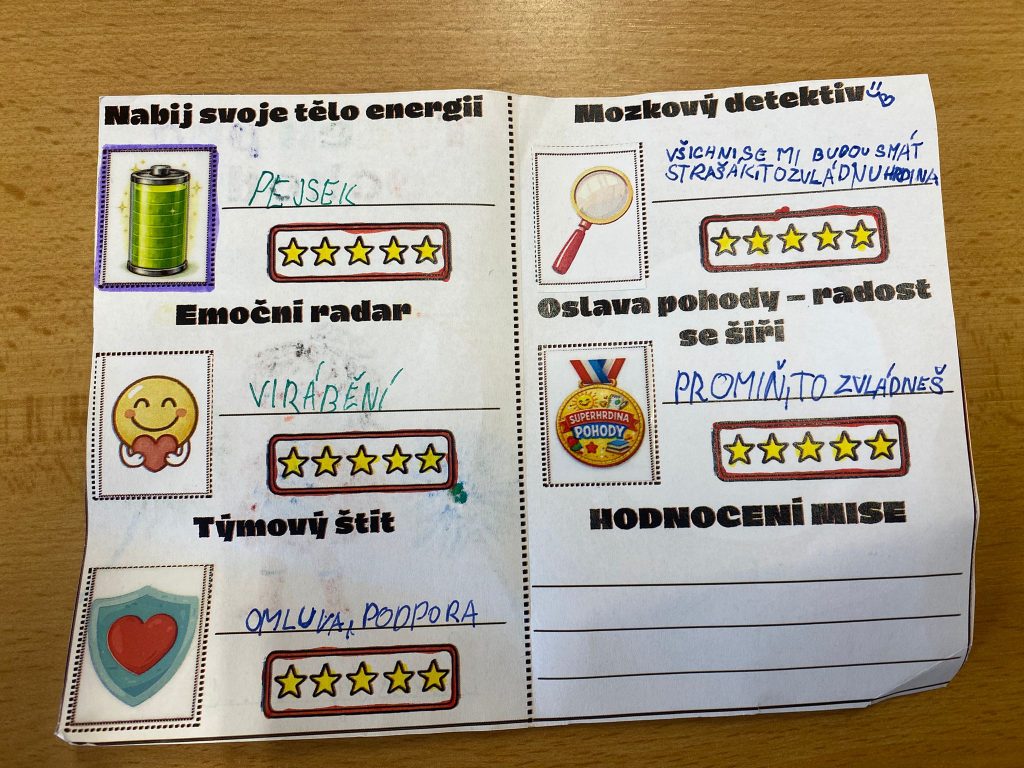 Nabij svoje tělo energií
PEJSEK
Emoční radar
VIRÁBĚNÍ
Týmový štít
OMLUVA, PODPORA
Mozkový detektiv
VŠICHNI SE MI BUDOU SMÁT
STRAŠÁK, TO ZVLÁDNU HRDINA
Oslava pohody – radost
se šíří
SUPERHRDINA
POHODY
PROMIŇ, TO ZVLÁDNEŠ
HODNOCENÍ MISE